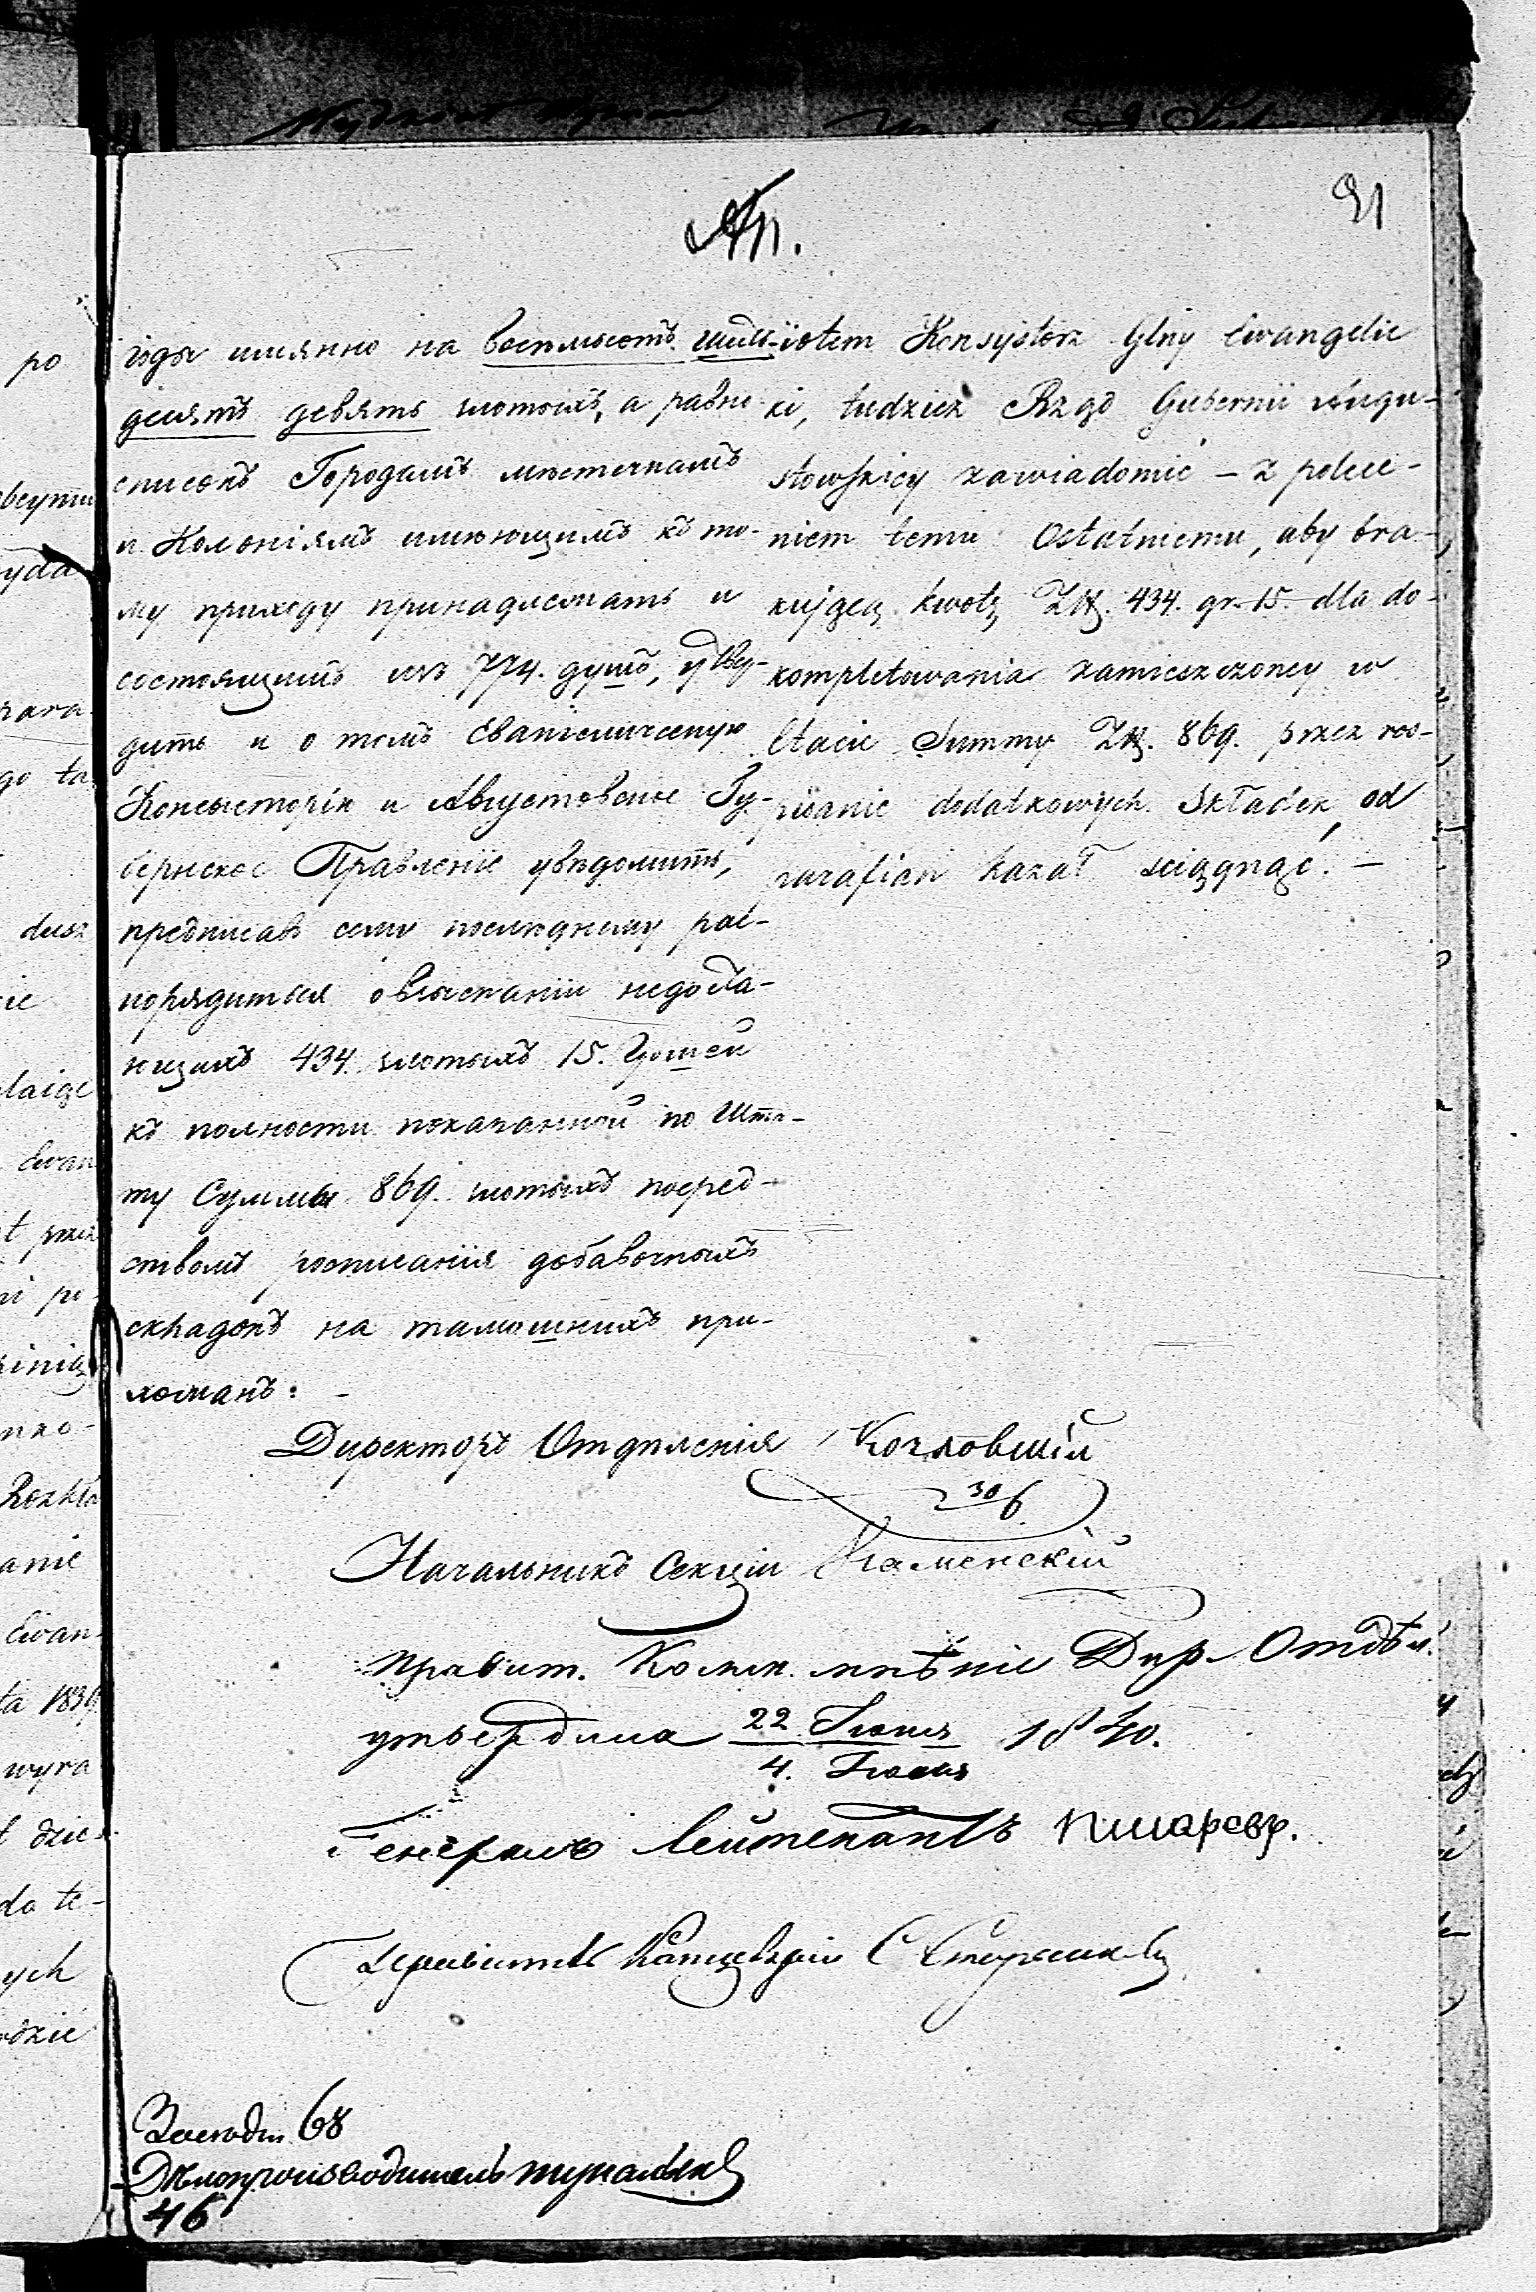 91
годъ имянно на восемьсотъ шесть-
десятъ девять злотыхъ, а равно
списокъ Городамъ местечкамъ
и Колоніямъ имеющимъ къ то-
му приходу принадлежать и
состоящимъ изъ 774. душъ, утвер-
дить и о томъ Евангелическую
Консисторію и Августовское Гу-
бернское Правленіе увѣдомить,
предписавъ сему последнему рас-
порядиться о взысканіи недоста-
ющихъ 434 злотыхъ 15. Грошей
къ полности показанной по Шта-
ту Суммы 869. злотыхъ посред-
ствомъ росписанія добавочныхъ
складокъ на тамошнихъ при-
хожанъ. –
iotem Konsystorz Glny Ewangelic
ki, tudzież Rząd Gubernii Augu-
stowskiey zawiadomić – z polece-
niem temu Ostatniemu, aby bra-
kuiącą kwotę Złł. 434. gr. 15. dla do-
kompletowania zamieszczoney w
Etacie Summy Złł. 869. przez ros-
pisanie dodatkowych Składek, od
parafian kazał ściągnąć. –
Директоръ Отделенія Козловскій
30/6
Начальникъ Секціи Каменскій
Правит. Комм. мнѣніе Дир. Отдѣл.
утвердила 22 Іюня 1840.
4. Іюля
Генералъ Лейтенантъ Писаревъ.
Правитель Канцеляріи
Заседан. 68
Дѣлопроизводитель
46